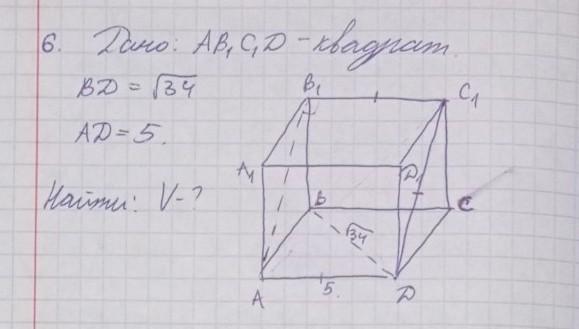 6. Дано: AB₁C₁D - квадрат.
BD = √34
AD = 5.
Найти: V - ?
B₁
C₁
A₁
D₁
B
C
√34
A
5.
D